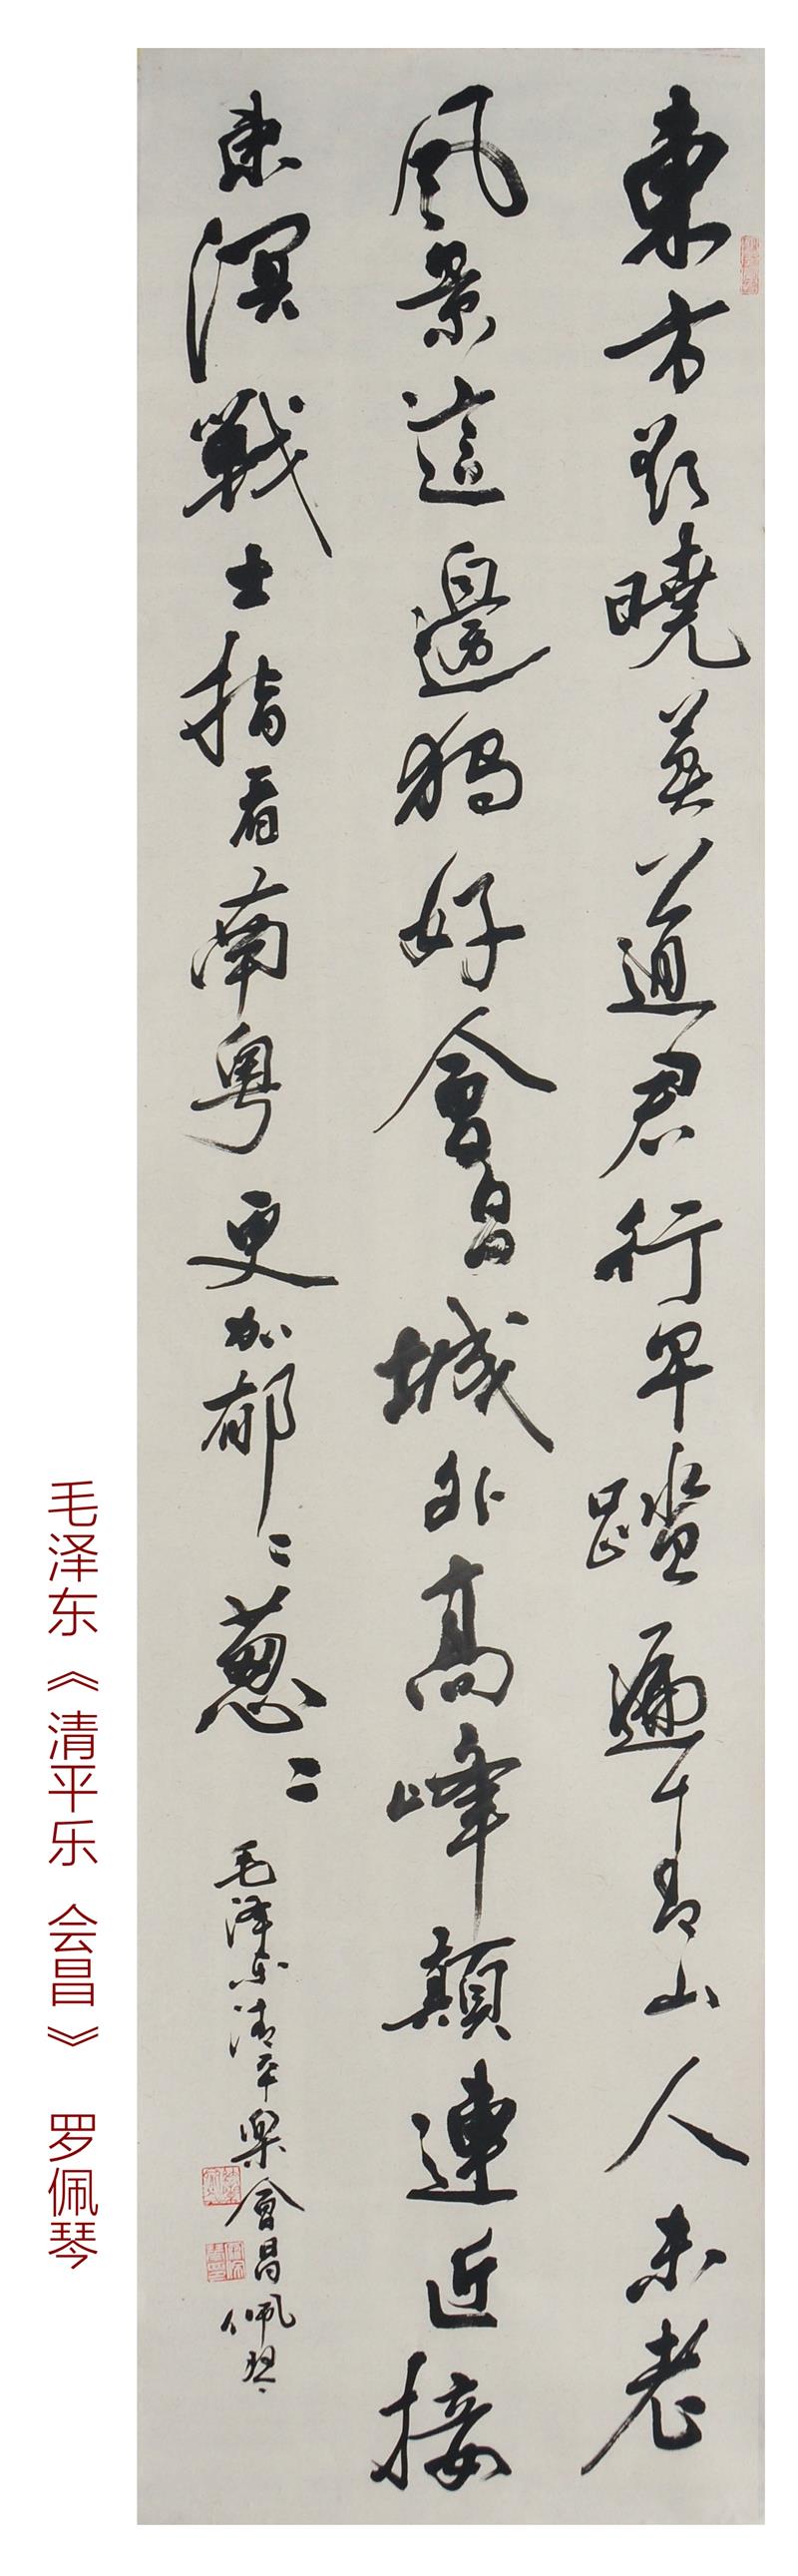 東方欲曉莫道君行早踏遍青山人未老
風景這邊獨好會昌城外高峰顛連近接
東溟戰士指看南粤更加郁〻葱〻
毛泽东清平樂會昌佩琴
毛泽东《清平乐 会昌》 罗佩琴